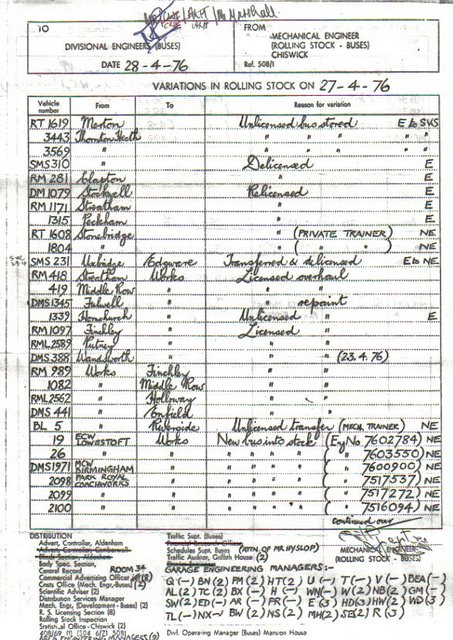 TO
DIVISIONAL ENGINEER (BUSES)
DATE 28-4-76
FROM
MECHANICAL ENGINEER
(ROLLING STOCK - BUSES)
CHISWICK
Ref. 508/1
VARIATIONS IN ROLLING STOCK ON 27-4-76
Vehicle number From To Reason for variation
RT 1619 Merton Unlicensed bus stored E to SWS
3443 Thornton Heath " " " " "
3569 " " " " " "
SMS 310 " Delicensed E
RM 281 Clapton " E
DM 1079 Stockwell Relicensed E
RM 1171 Streatham " E
1315 Peckham " E
RT 1608 Stonebridge " (PRIVATE TRAINER) NE
1804 " " ( " " ) NE
SMS 231 Uxbridge Edgware Transferred & delicensed E to NE
RM 418 Streatham Works Licensed overhaul
419 Middle Row " " "
DMS 1345 Fulwell " " repaint
1339 Hornchurch " Unlicensed " E
RM 1097 Finchley " Licensed "
RML 2589 Putney " " "
DMS 388 Wandsworth " " " (23.4.76)
RM 989 Works Finchley " "
1082 " Middle Row " "
RML 2562 " Holloway " "
DMS 441 " Enfield " "
BL 5 " Riverside Unlicensed transfer (MECH. TRAINER) NE
19 ECW LOWESTOFT Works New bus into stock (Eng No 7602784) NE
26 " " " " " ( " 7603550) NE
DMS 1971 MCW BIRMINGHAM " " " " ( " 7600900) NE
2098 PARK ROYAL COACHWORKS " " " " ( " 7517537) NE
2099 " " " " " ( " 7517272) NE
2100 " " " " " ( " 7516094) NE
continued over
DISTRIBUTION
Advert. Controller, Aldenham
Advert. Controller, Camberwell
Body Spec. Section,
Central Record ROOM 34
Commercial Advertising Officer
Costs Office (Mech. Engr.-Buses) (2)
Scientific Adviser (2)
Distribution Services Manager
Mech. Engr. (Development - Buses) (2)
R. S. Licensing Section (8)
Rating Officer
Statistical Office - Chiswick (2)
Traffic Supt. (Buses)
Schedules Supt. Buses (ATTN. OF MR HYSLOP)
Traffic Auditor, Griffith House (2)
MECHANICAL ENGINEER
(ROLLING STOCK - BUSES)
GARAGE ENGINEERING MANAGERS:-
Divl. Operating Manager (Buses) Mansion House